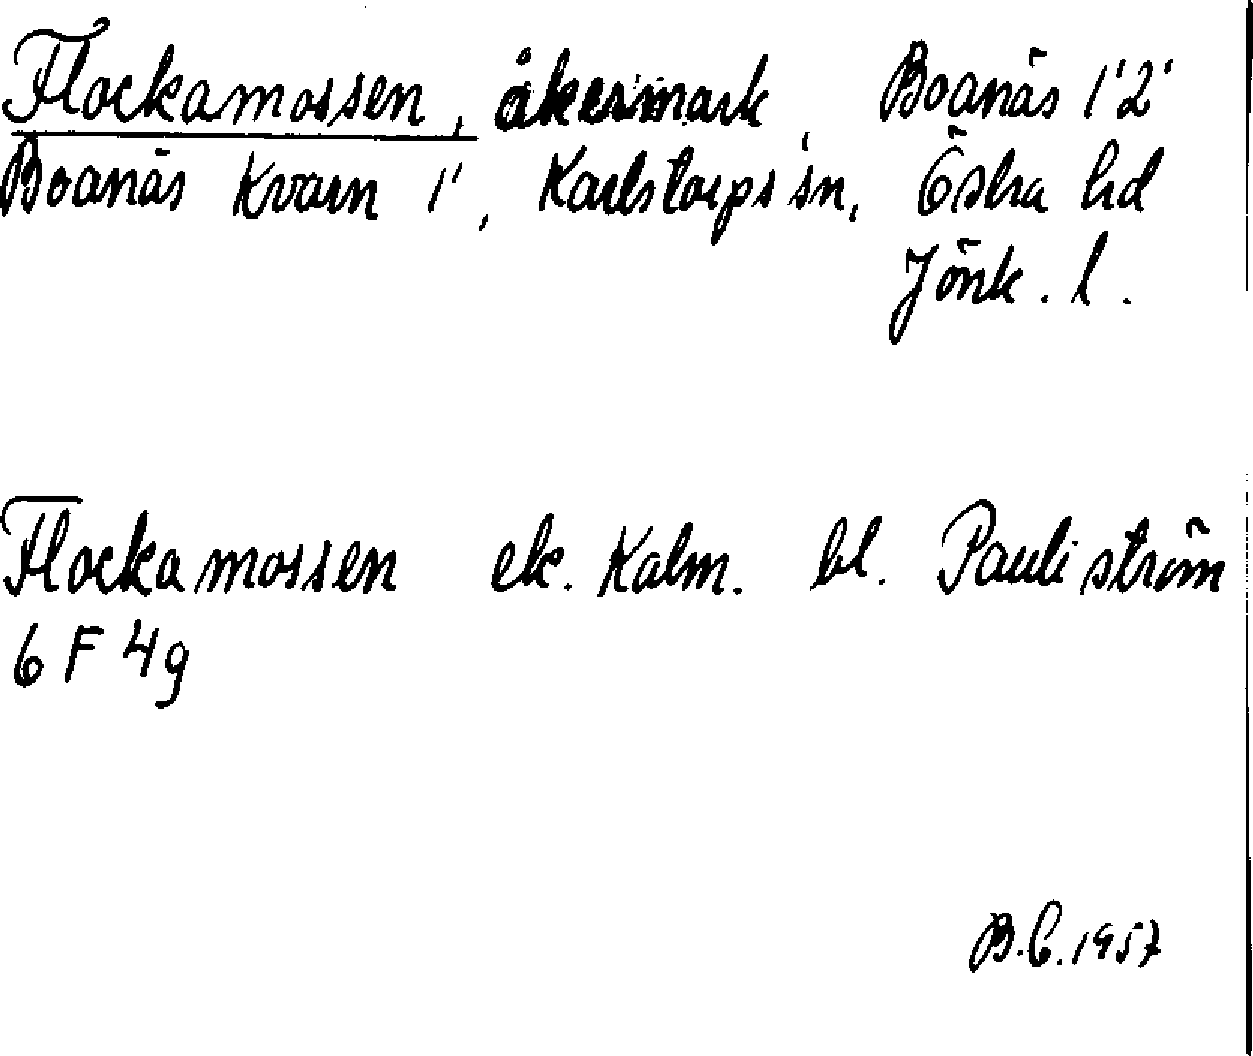 Flockamossen, åkermark, Boanäs 1'2'
Boanäs Kvarn 1', Karlstorps sn, Östra hd
Jönk. l.
Flockamossen ek. Kalm. bl. Pauliström
6 F 4g
B.C. 1957